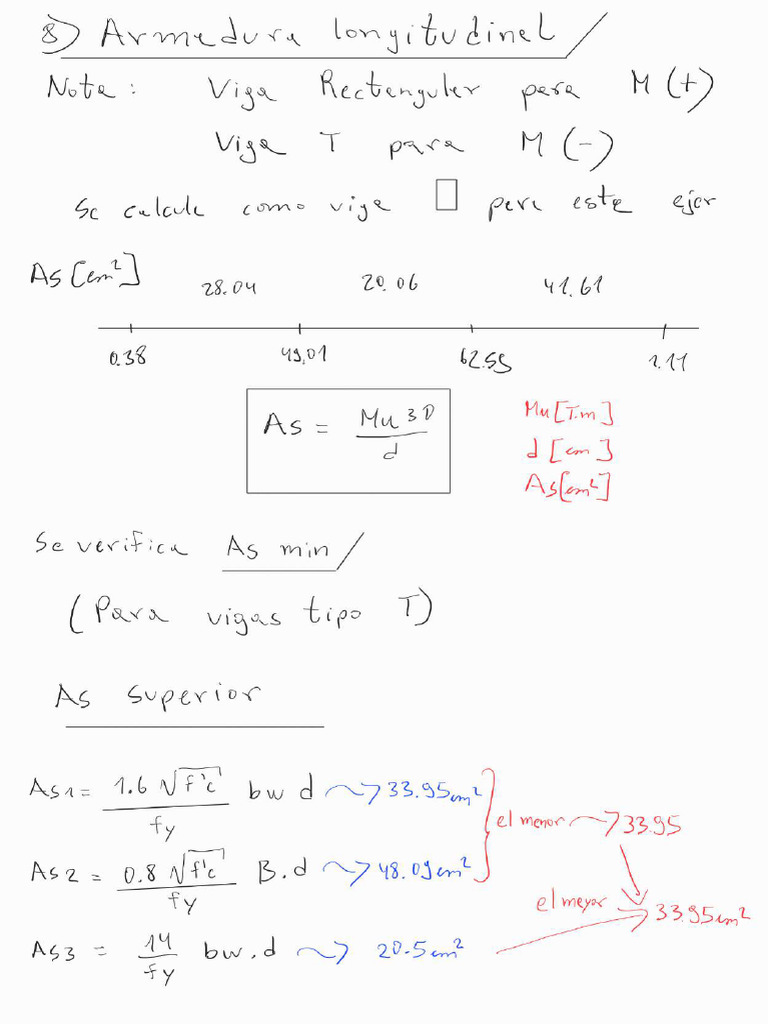 8) Armadura longitudinal
Nota: Viga Rectangular para M (+)
Viga T para M (-)
Se calcula como viga para este ejer
As [cm²] 28.04 20.06 41.61
0.38 49.01 62.55 1.11
As = Mu 30 / d
Mu [T.m]
d [cm]
As [cm²]
Se verifica As min
(Para vigas tipo T)
As superior
As1 = 1.6 √f'c / fy bw d → 33.95 cm²
el menor → 33.95
As2 = 0.8 √f'c / fy B.d → 48.09 cm²
el mayor 33.95 cm²
As3 = 14 / fy bw.d → 20.5 cm²